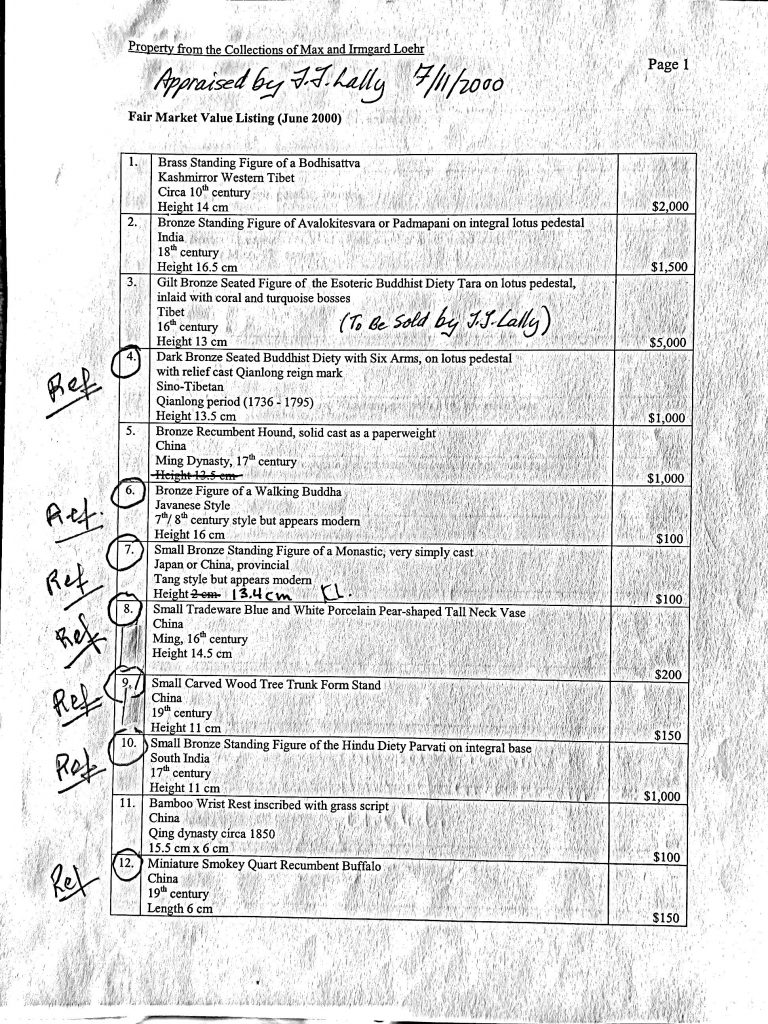 Property from the Collections of Max and Irmgard Loehr
Page 1
Appraised by J.J. Lally 7/11/2000
Fair Market Value Listing (June 2000)
1. Brass Standing Figure of a Bodhisattva
Kashmirror Western Tibet
Circa 10th century
Height 14 cm $2,000
2. Bronze Standing Figure of Avalokitesvara or Padmapani on integral lotus pedestal
India
18th century
Height 16.5 cm $1,500
3. Gilt Bronze Seated Figure of the Esoteric Buddhist Diety Tara on lotus pedestal,
inlaid with coral and turquoise bosses
Tibet
16th century (To Be Sold by J.J. Lally)
Height 13 cm $5,000
Ref 4. Dark Bronze Seated Buddhist Diety with Six Arms, on lotus pedestal
with relief cast Qianlong reign mark
Sino-Tibetan
Qianlong period (1736 - 1795)
Height 13.5 cm $1,000
5. Bronze Recumbent Hound, solid cast as a paperweight
China
Ming Dynasty, 17th century
Height 13.5 cm $1,000
Ref. 6. Bronze Figure of a Walking Buddha
Javanese Style
7th/ 8th century style but appears modern
Height 16 cm $100
Ref 7. Small Bronze Standing Figure of a Monastic, very simply cast
Japan or China, provincial
Tang style but appears modern
Height 2 cm 13.4 cm $100
Ref 8. Small Tradeware Blue and White Porcelain Pear-shaped Tall Neck Vase
China
Ming, 16th century
Height 14.5 cm
$200
Ref 9. Small Carved Wood Tree Trunk Form Stand
China
19th century
Height 11 cm $150
Ref 10. Small Bronze Standing Figure of the Hindu Diety Parvati on integral base
South India
17th century
Height 11 cm $1,000
11. Bamboo Wrist Rest inscribed with grass script
China
Qing dynasty circa 1850
15.5 cm x 6 cm $100
Ref 12. Miniature Smokey Quart Recumbent Buffalo
China
19th century
Length 6 cm $150